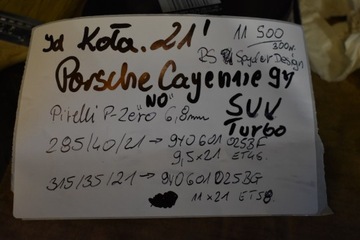 Jd Koła. 21' 11 500
300,-
RS Spyder Design
Porsche Cayenne 9Y
"NO"
Pirelli P-Zero 6,8mm SUV
Turbo
285/40/21 → 9Y0601025BF
9,5x21 ET46.
315/35/21 → 9Y0601025BG
11x21 ET58.